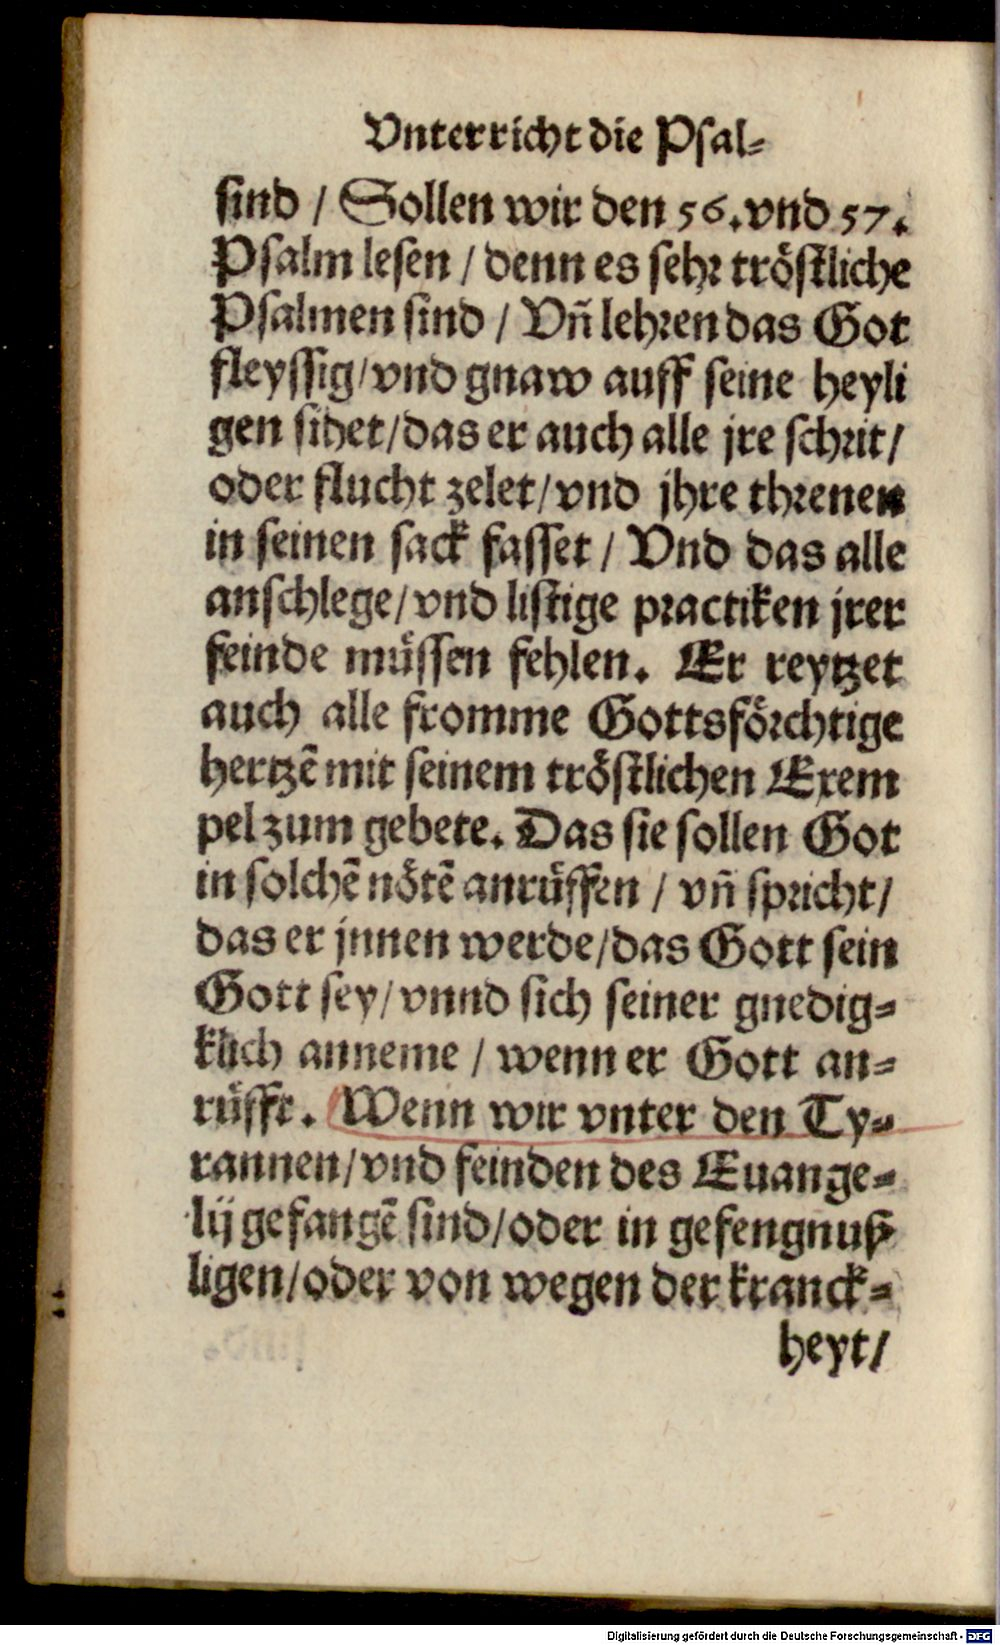 Vnterricht die Psal-
sind / Sollen wir den 56. vnd 57.
Psalm lesen / denn es sehr tröstliche
Psalmen sind / Vñ lehren das Got
fleyssig / vnd gnaw auff seine heyli
gen sihet / das er auch alle jre schrit /
oder flucht zelet / vnd jhre threnen
in seinen sack fasset / Vnd das alle
anschlege / vnd listige practiken jrer
feinde müssen fehlen. Er reytzet
auch alle fromme Gottsförchtige
hertzẽ mit seinem tröstlichen Exem
pel zum gebete. Das sie sollen Got
in solchẽ nötẽ anrüffen / vñ spricht /
das er jnnen werde / das Gott sein
Gott sey / vnnd sich seiner gnedig-
klich anneme / wenn er Gott an-
rüfft. Wenn wir vnter den Ty-
rannen / vnd feinden des Euange-
lij gefangẽ sind / oder in gefengnuß
ligen / oder von wegen der kranck-
heyt /
Digitalisierung gefördert durch die Deutsche Forschungsgemeinschaft - DFG